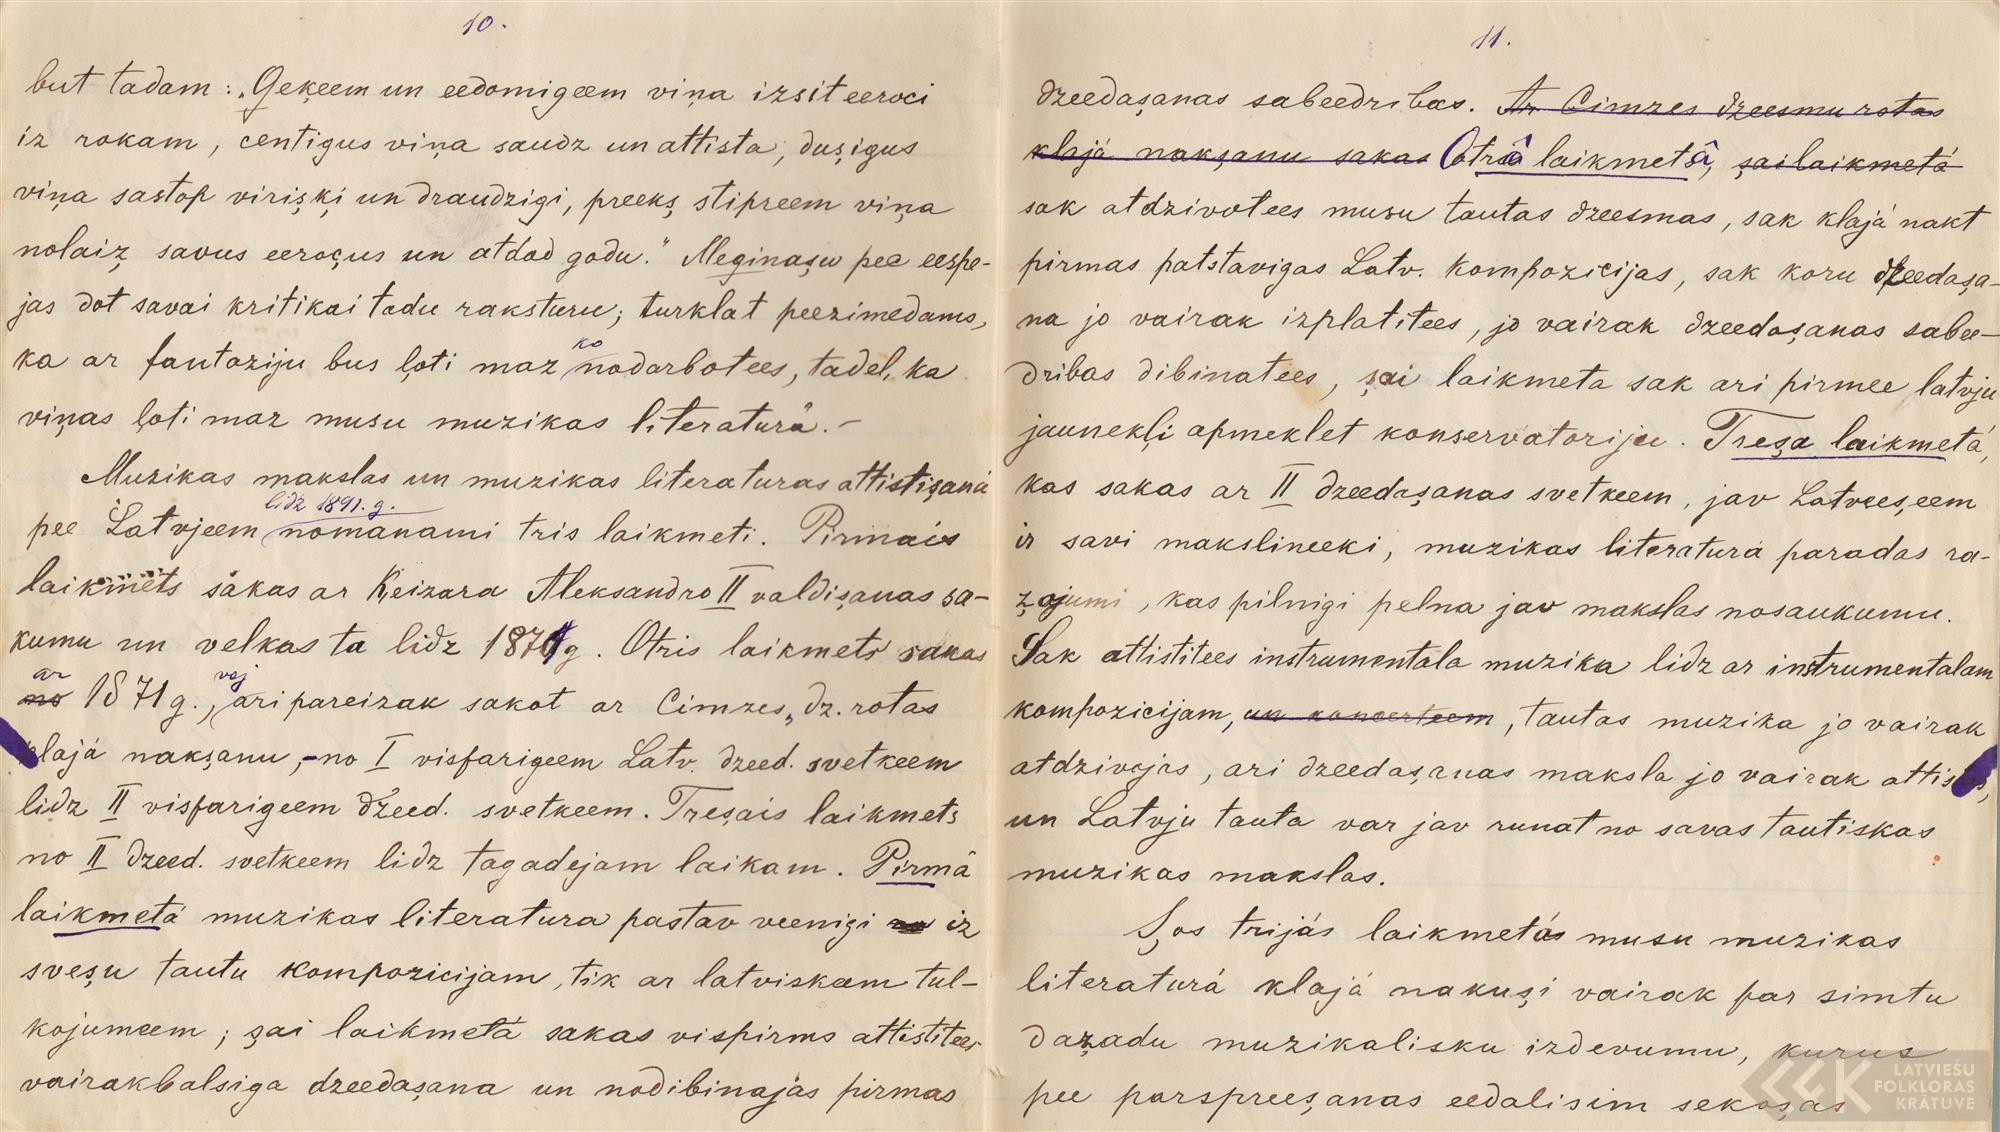 10.
but tadam: „Ģeķeem un eedomigeem viņa izsit eeroci
iz rokam, centigus viņa saudz un attista, duşigus
viņa sastop virişķi un draudzigi, preekş stipreem viņa
nolaiz̧ savus eeroçus un atdod godu." Meginaşu pee eespe-
jas dot savai kritikai tadu raksturu; turklat peezimedams,
ka ar fantaziju bus ļoti maz ko nodarbotees, tadel, ka
viņas ļoti maz musu muzikas literaturâ.-
Muzikas makslas un muzikas literaturas attistişanâ
pee Latvjeem lidz 1891. g. nomanami tris laikmeti. Pirmais
laikmets sakas ar Ķeizara Aleksandro II valdişanas sa-
kumu un velkas ta lidz 1871 g. Otris laikmets sakas
no ar 1871 g., vaj ari pareizak sakot ar Cimzes „dz. rotas
klajá nakşanu, - no I visparigeem Latv. dzeed. svetkeem
lidz II visparigeem dzeed. svetkeem. Treşais laikmets
no II dzeed. svetkeem lidz tagadejam laikam. Pirmâ
laikmetá muzikas literatura pastav veenigi no iz
sveşu tautu kompozicijam, tik ar latviskeem tul-
kojumeem; şai laikmetá sakas vispirms attistitees
vairakbalsiga dzeedaşana un nodibinajás pirmas
11.
dzeedaşanas sabeedribas. Ar Cimzes dzeesmu rotas
klajá nakşanu sakas Otrâ laikmetâ, şai laikmetá
sak atdzivotees musu tautas dzeesmas, sak klajá nakt
pirmas patstavigas Latv. kompozicijas, sak koru dzeedaşa-
na jo vairak izplatitees, jo vairak dzeedaşanas sabee-
dribas dibinatees, şai laikmeta sak ari pirmee latvju
jaunekļi apmeklet konservatoriju. Treşa laikmetá,
kas sakas ar II dzeedaşanas svetkeem, jav Latveeşeem
ir savi makslineeki, muzikas literaturá paradas ra-
z̧ojumi, kas pilnigi pelna jav makslas nosaukumu.
Sak attistitees instrumentala muzika lidz ar instrumentalam
kompozicijam, un koncerteem, tautas muzika jo vairak
atdzivojás, ari dzeedaşanas maksla jo vairak attistas,
un Latvju tauta var jav runat no savas tautiskas
muzikas makslas.
Şos trijás laikmetás musu muzikas
literaturá klajá nakuşi vairak par simtu
daz̧adu muzikalisku izdevumu, kurus
pee parspreeşanas eedalisim sekoşas
LATVIEŠU
FOLKLORAS
KRĀTUVE